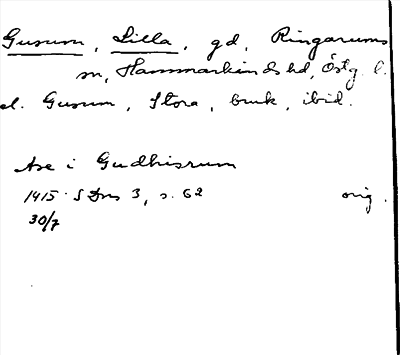 Gusum, Lilla, gd, Ringarums
sn, Hammarkinds hd, Östg. l.
el. Gusum, Stora, bruk, ibid.
Axe i Gudhisrum
1415 SDns 3, s. 62 orig.
30/7